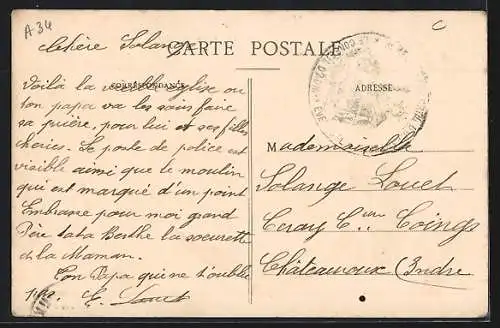 A 34
Chère Solange
CARTE POSTALE
CORRESPONDANCE
ADRESSE
Voilà la vieille église ou
ton papa va les soirs faire
sa prière, pour lui et ses filles
cheries. Le poste de police est
visible ainsi que le moulin
qui est marqué d'un point
Embrasse pour moi grand
Père tata Berthe la soeurette
et la Maman.
Ton Papa qui ne t'oublie
pas. E. Louet
Mademoiselle
Solange Louet
Ceray Cne Coings
Châteauroux (Indre